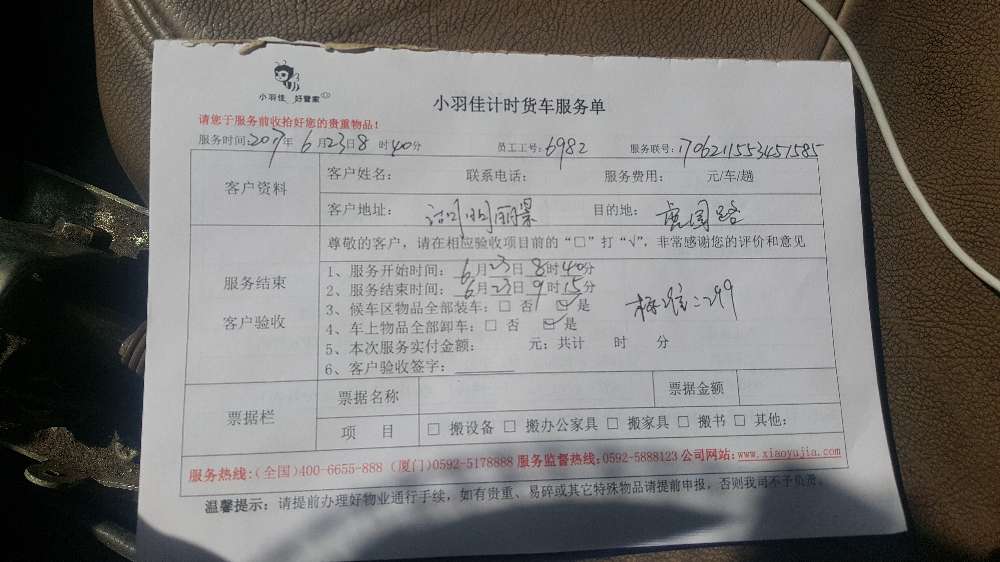 小羽佳 好管家
小羽佳计时货车服务单
请您于服务前收拾好您的贵重物品!
服务时间:2017年6月23日8时40分 员工工号:6982 服务联号:1706211553451585
客户资料
客户姓名: 联系电话: 服务费用: 元/车/趟
客户地址: 丽景 目的地: 虎园路
服务结束
客户验收
尊敬的客户，请在相应验收项目前的“□”打“√”，非常感谢您的评价和意见
1、服务开始时间: 6月23日8时40分
2、服务结束时间: 6月23日9时15分
3、候车区物品全部装车: □ 否 ☑ 是
4、车上物品全部卸车: □ 否 ☑ 是
标准:299
5、本次服务实付金额: 元;共计 时 分
6、客户验收签字:
票据栏
票据名称 票据金额
项 目 □ 搬设备 □ 搬办公家具 □ 搬家具 □ 搬书 □ 其他:
服务热线:(全国)400-6655-888 (厦门)0592-5178888 服务监督热线:0592-5888123 公司网站:www.xiaoyujia.com
温馨提示: 请提前办理好物业通行手续，如有贵重、易碎或其它特殊物品请提前申报，否则我司不予负责。